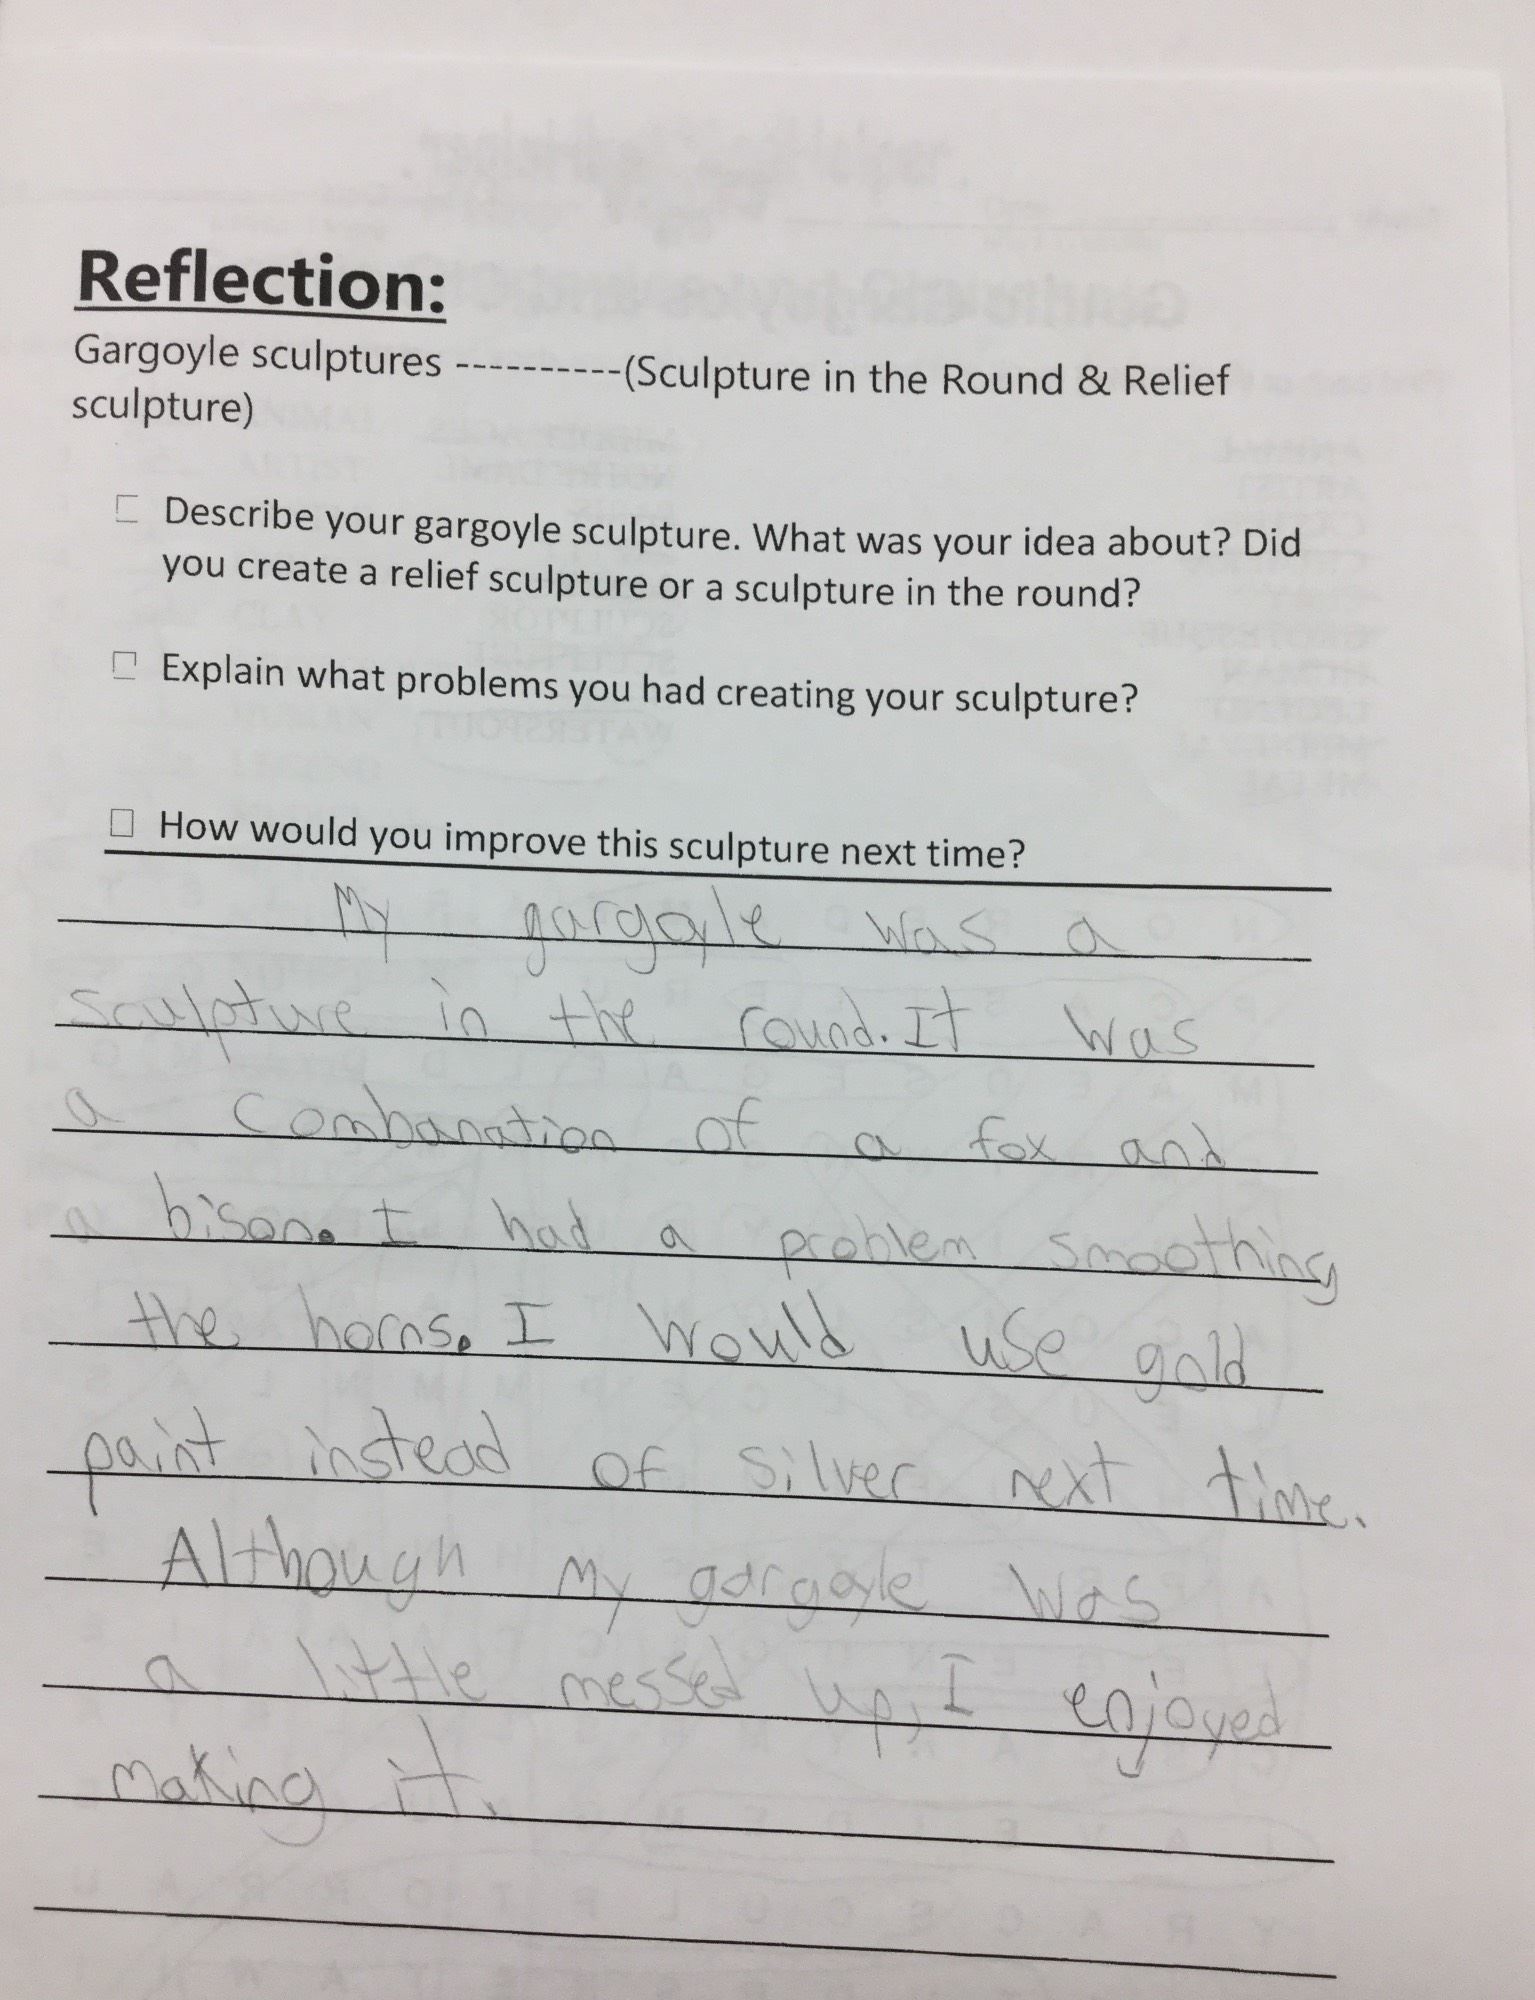 Reflection:
Gargoyle sculptures ----------(Sculpture in the Round & Relief
sculpture)
Describe your gargoyle sculpture. What was your idea about? Did
you create a relief sculpture or a sculpture in the round?
Explain what problems you had creating your sculpture?
How would you improve this sculpture next time?
My gargoyle was a
sculpture in the round. It was
a combanation of a fox and
a bison. I had a problem smoothing
the horns. I would use gold
paint instead of silver next time.
Although my gargoyle was
a little messed up, I enjoyed
making it.